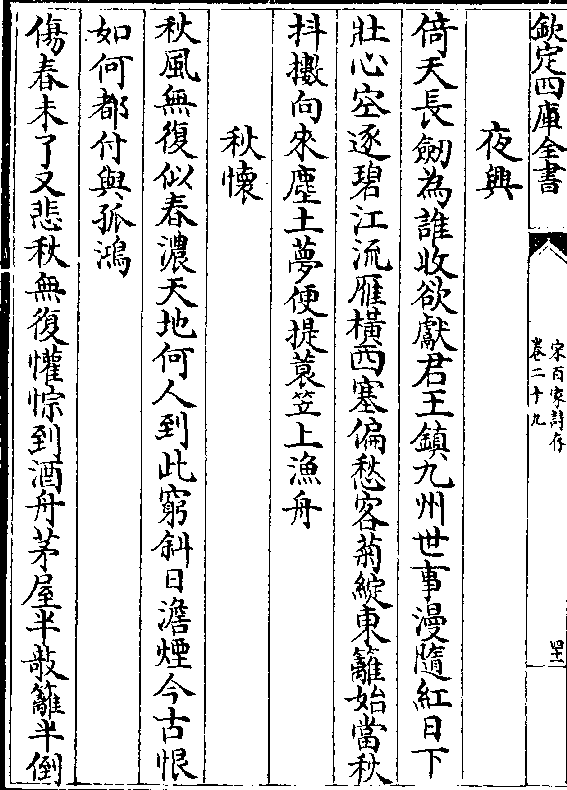 欽定四庫全書
宋百家詩存
卷二十九
夜興
倚天長劒為誰收欲獻君王鎮九州世事漫隨紅日下
壯心空逐碧江流雁橫西塞偏愁客菊綻東籬始當秋
抖擻向來塵土夢便提蓑笠上漁舟
秋懷
秋風無復似春濃天地何人到此窮斜日澹煙今古恨
如何都付與孤鴻
傷春未了又悲秋無復懽悰到酒舟茅屋半敧籬半倒